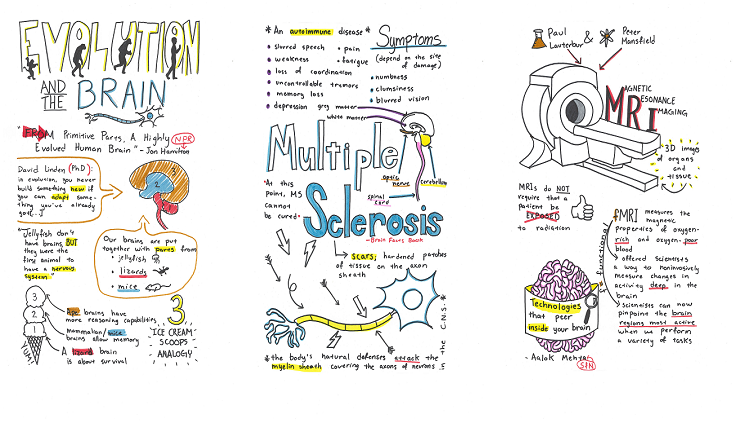 EVOLUTION
AND THE BRAIN
"FROM Primitive Parts, A Highly
Evolved Human Brain" - Jon Hamilton
NPR
David Linden (PhD):
in evolution, you never
build something new if
you can adapt some-
thing you've already
got[...]
3
2
1
"Jellyfish don't
have brains, BUT
they were the
first animal to
have a nervous
system"
Our brains are put
together with parts from:
• jellyfish
• lizards
• mice
3
2
1
YUM!
Ape brains have
more reasoning capabilities
mammalian/mice
brains allow memory
A lizard brain
is about survival
3
ICE CREAM
SCOOPS
ANALOGY
* An autoimmune disease *
Symptoms
(depend on the site
of damage)
• slurred speech
• weakness
• loss of coordination
• uncontrollable tremors
• memory loss
• depression
• pain
• fatigue
• numbness
• clumsiness
• blurred vision
grey matter
white matter
optic nerve
cerebellum
spinal cord
Multiple
Sclerosis
- Brain Facts Book
"At this
point, MS
cannot
be cured"
scars; hardened patches
of tissue on the axon
sheath
* the body's natural defenses attack the
myelin sheath covering the axons of neurons
IN THE C.N.S. *
Paul
Lauterbur
&
Peter
Mansfield
MAGNETIC
RESONANCE
IMAGING
3D images
of organs
and
tissue
MRIs do NOT
require that a
patient be
EXPOSED
to radiation
f = functional
fMRI measures the
magnetic
properties of oxygen-
rich and oxygen-poor
blood
→ offered scientists
a way to noninvasively
measure changes in
activity deep in the
brain
→ Scientists can now
pinpoint the brain
regions most active
when we perform
a variety of tasks
Technologies
that peer
inside your brain
- Aalok Mehta
SfN